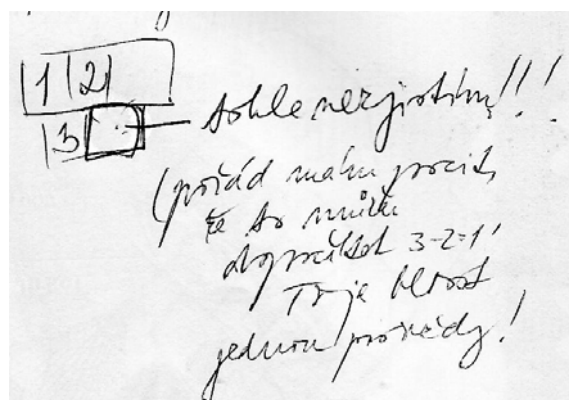 1 2
3
tohle nezjistím!!!
(pořád mám pocit,
že to můžu
dopočítat 3-2=1!
To je blbost
jednou provždy!